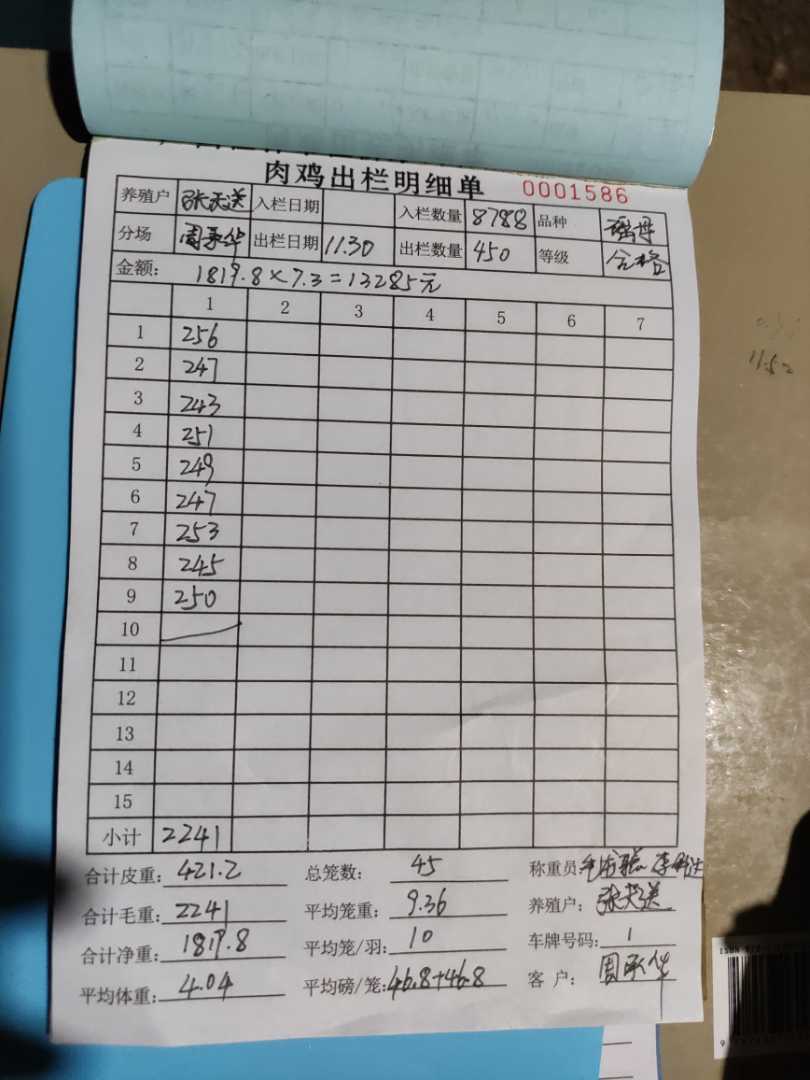 肉鸡出栏明细单 0001586
养殖户 张天送 入栏日期 入栏数量 8788 品种
分场 周承华 出栏日期 11.30 出栏数量 450 等级 合格
金额: 1819.8×7.3=13285元
1 2 3 4 5 6 7
1 256
2 247
3 243
4 251
5 249
6 247
7 253
8 245
9 250
10
11
12
13
14
15
小计 2241
合计皮重: 421.2 总笼数: 45 称重员:
合计毛重: 2241 平均笼重: 9.36 养殖户: 张天送
合计净重: 1819.8 平均笼/羽: 10 车牌号码: 1
平均体重: 4.04 平均磅/笼: 46.8+46.8 客户: 周承华